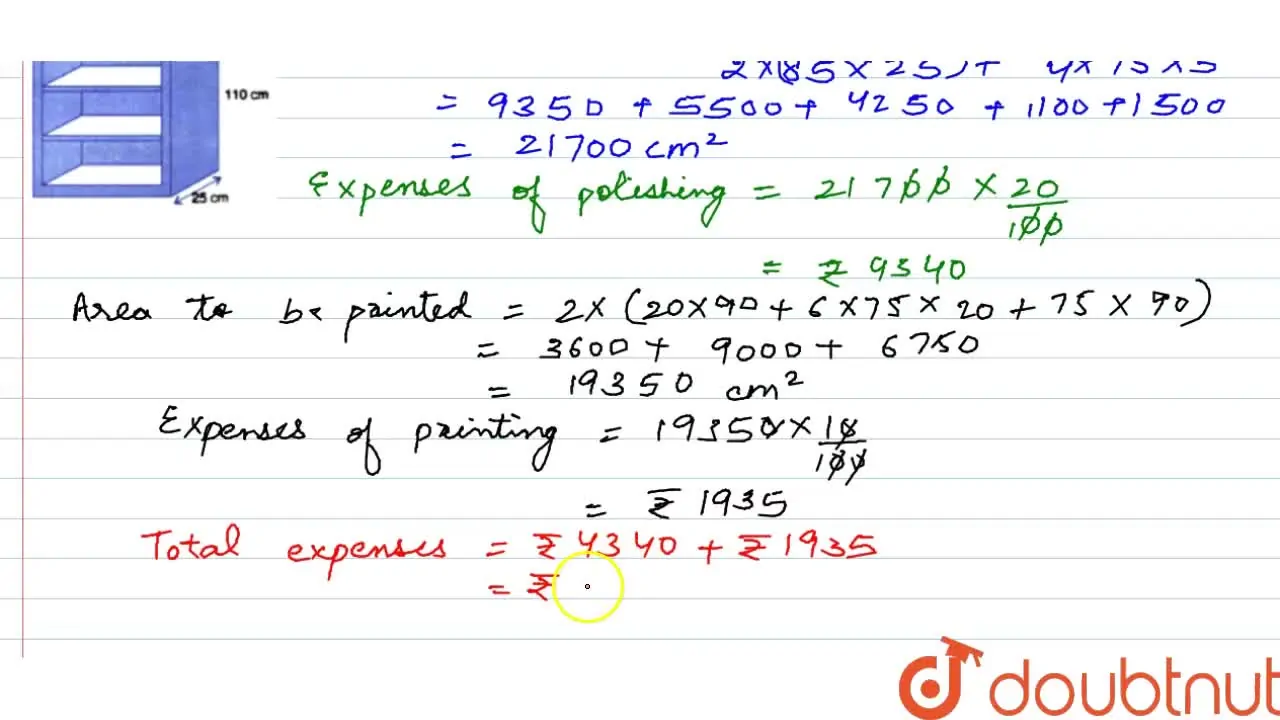 2×(85×25)+ 4×75×5
110 cm
= 9350 + 5500 + 4250 + 1100 + 1500
= 21700 cm²
25 cm
Expenses of polishing = 21700 × 20/100
= ₹ 9340
Area to be painted = 2×(20×90 + 6×75×20 + 75×90)
= 3600 + 9000 + 6750
= 19350 cm²
Expenses of printing = 19350 × 10/100
= ₹ 1935
Total expenses = ₹ 4340 + ₹ 1935
= ₹
doubtnut